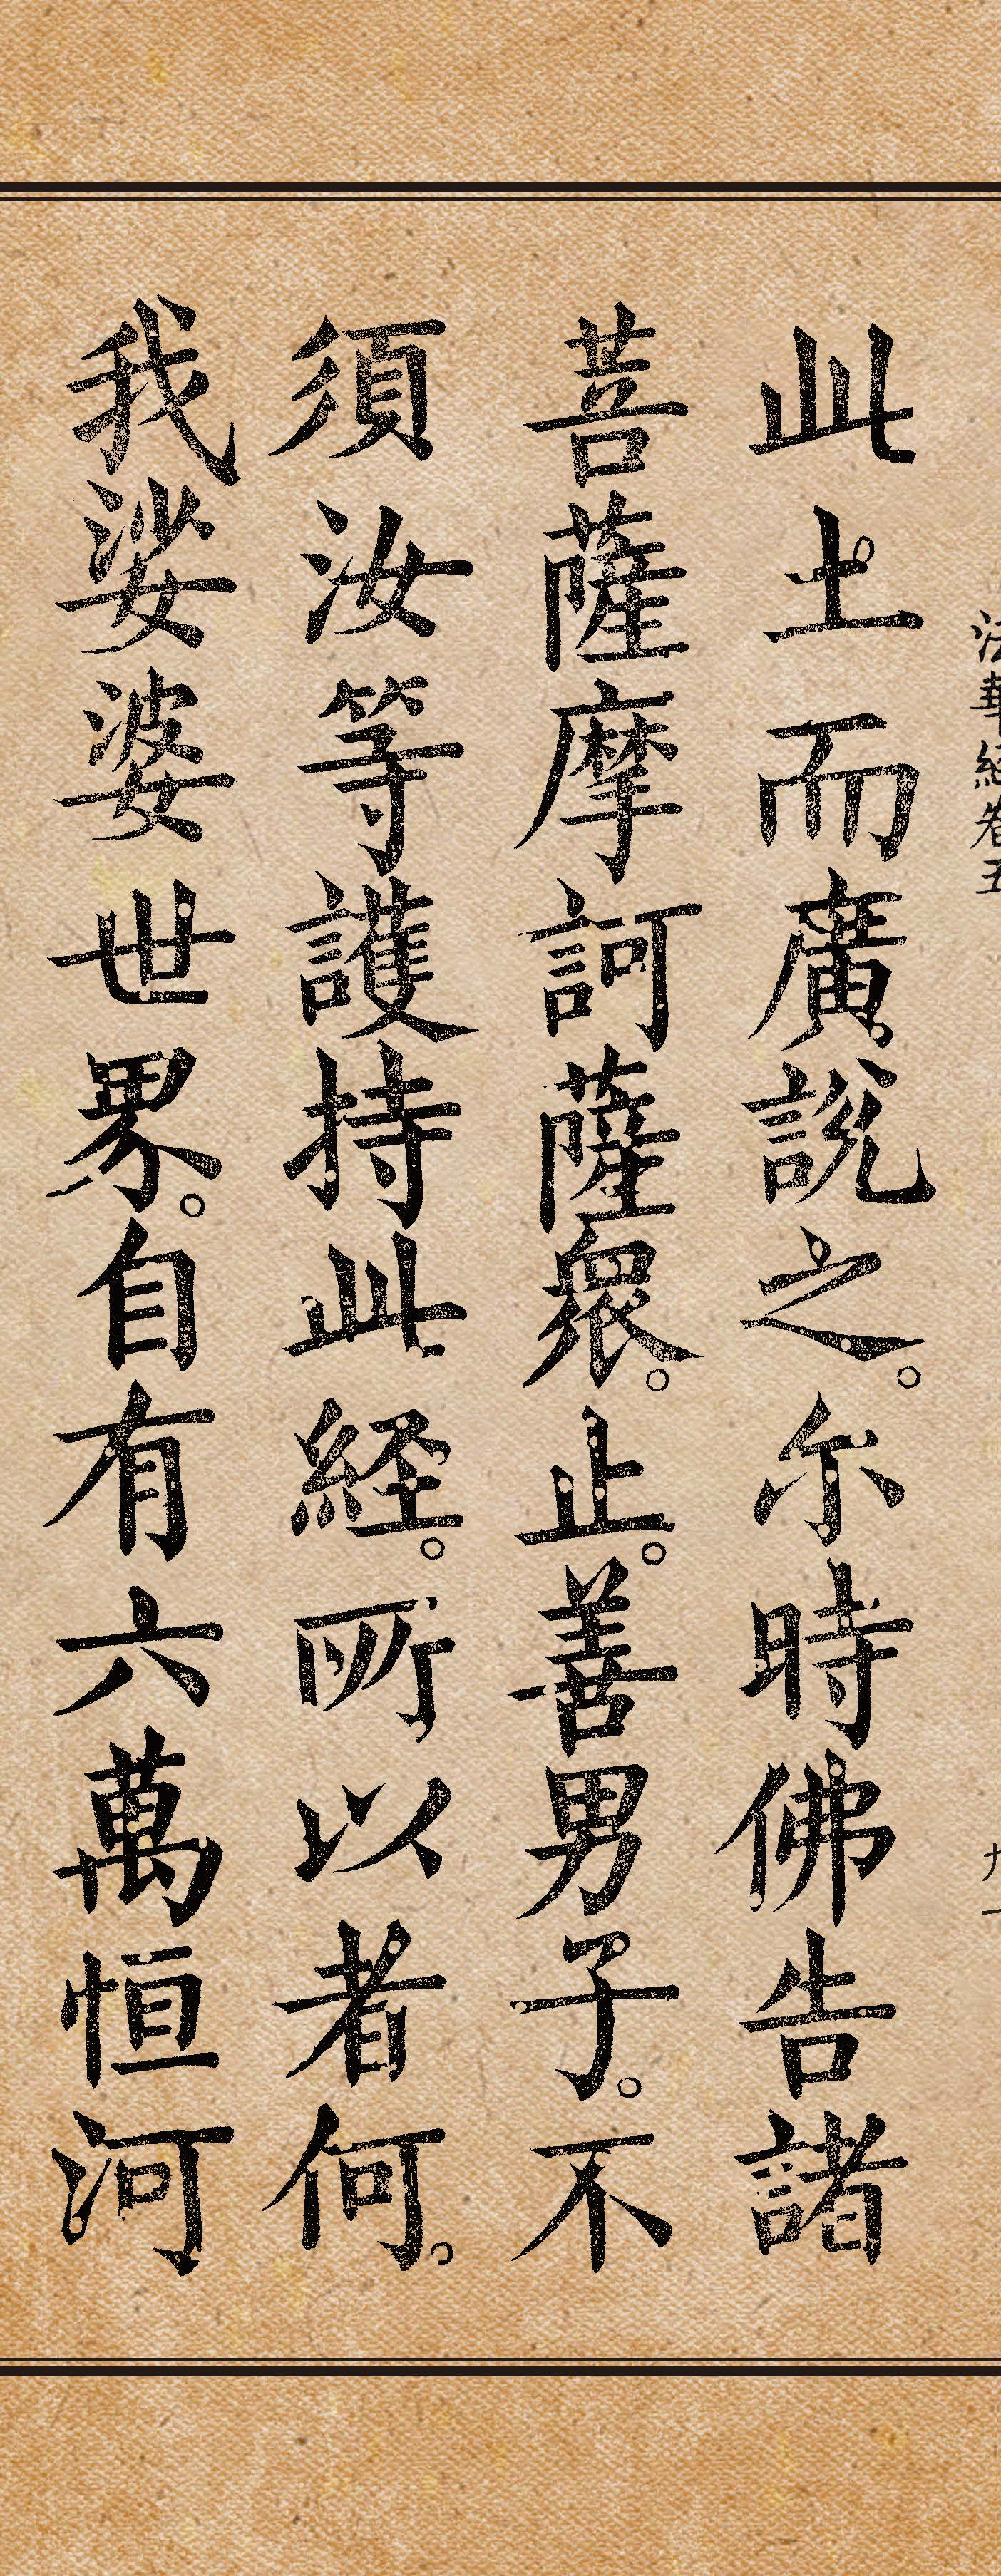 法華経卷五
九一
此土而廣說之。尓時佛告諸
菩薩摩訶薩衆。止。善男子。不
須汝等護持此経。所以者何。
我娑婆世界。自有六萬恒河